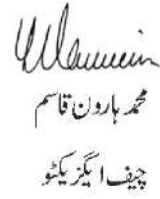 محمد ہارون قاسم
چیف ایگزیکٹو